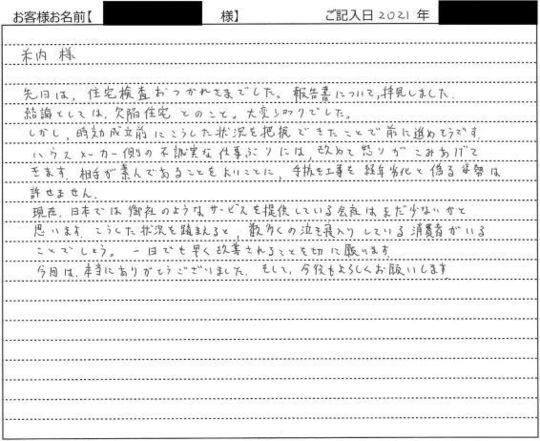 お客様お名前【 様】 ご記入日 2021 年
米内 様
先日は、住宅検査おつかれさまでした。報告書について、拝見しました。
結論としては、欠陥住宅 とのこと。大変ショックでした。
しかし、時効成立前にこうした状況を把握できたことで前に進めそうです。
ハウスメーカー側の不誠実な仕事ぶりには、改めて怒りがこみあげて
きます。相手が素人であることをよいことに、手抜き工事を経年劣化と偽る姿勢は
許せません。
現在、日本では御社のようなサービスを提供している会社はまだ少ないかと
思います。こうした状況を踏まえると、数多くの泣き寝入りしている消費者がいる
ことでしょう。一日でも早く改善されることを切に願います。
今回は、本当にありがとうございました。そして、今後もよろしくお願いします